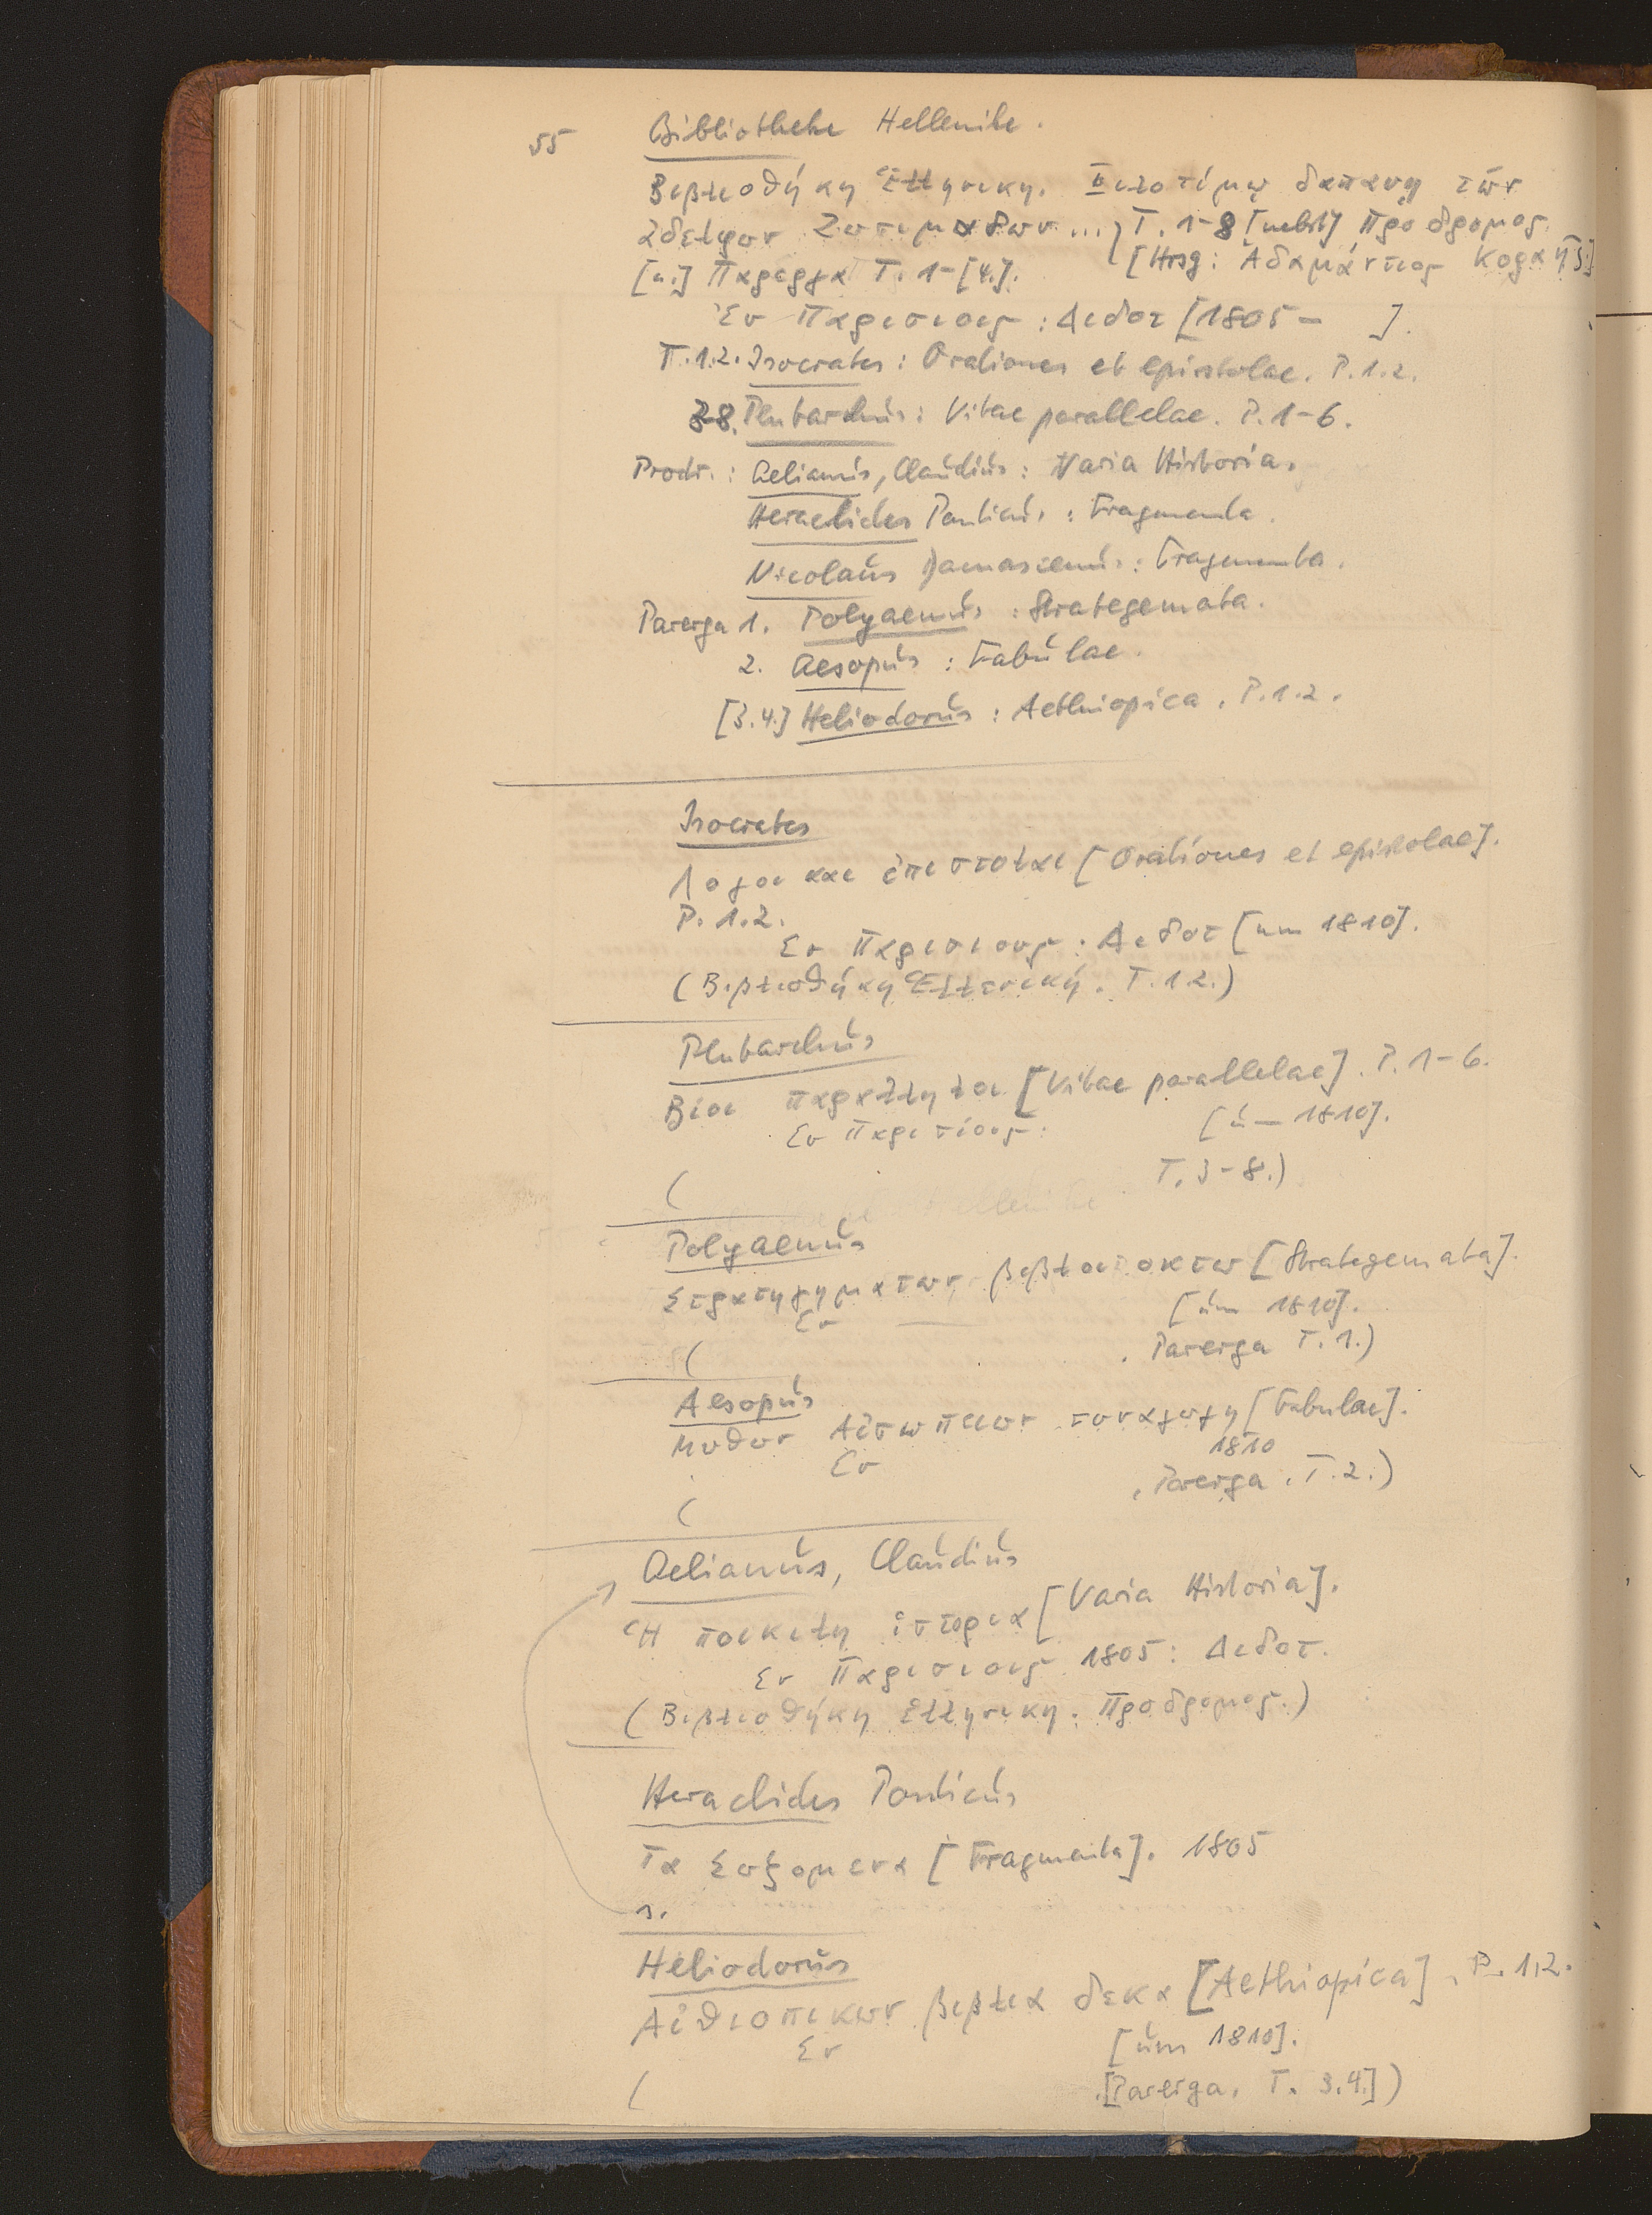 55 Bibliotheke Hellenike.
Βιβλιοθήκη Ἑλληνικη. Φιλοτίμῳ δαπανῃ τῶν
Ἀδελφων Ζωσιμαδων ... T. 1-8 [nebst] Προδρομος.
[u.] Παρεργα T. 1-[4.]. [Hrsg: Ἀδαμάντιος Κοραῆς.]
Ἐν Παρισιοις: Διδοτ [1805 - ].
T. 1.2. Isocrates: Orationes et epistolae. P. 1.2.
3-8. Plutarchus: Vitae parallelae. P. 1-6.
Prodr.: Aelianus, Claudius: Varia Historia.
Heraclides Ponticus: Fragmenta.
Nicolaus Damascenus: Fragmenta.
Parerga 1. Polyaenus: Strategemata.
2. Aesopus: Fabulae.
[3.4.] Heliodorus: Aethiopica. P. 1.2.
Isocrates
Λογοι και ἐπιστολαι [Orationes et epistolae].
P. 1.2.
Εν Παρισιοις: Διδοτ [um 1810].
(Βιβλιοθήκη Ἑλλενική. T. 1.2.)
Plutarchus
Βίοι παραλληλοι [Vitae parallelae]. P. 1-6.
Εν Παρισίοις: [um 1810].
( T. 3-8.)
Polyaenus
Στρατηγηματων βιβλοι οκτω [Strategemata].
Εν — [um 1810].
( . Parerga T. 1.)
Aesopus
Μυθων Αἰσωπειων συναγωγη [Fabulae].
Εν 1810
( , Parerga. T. 2.)
Aelianus, Claudius
Ἡ ποικιλη ἱστορια [Varia Historia].
Εν Παρισιοις 1805: Διδοτ.
(Βιβλιοθήκη Ἑλληνικη. Προδρομος.)
Heraclides Ponticus
Τα Σωζομενα [Fragmenta]. 1805
s.
Heliodorus
Αἰθιοπικων βιβλια δεκα [Aethiopica]. P. 1.2.
Εν [um 1810].
( .[Parerga. T. 3.4.])